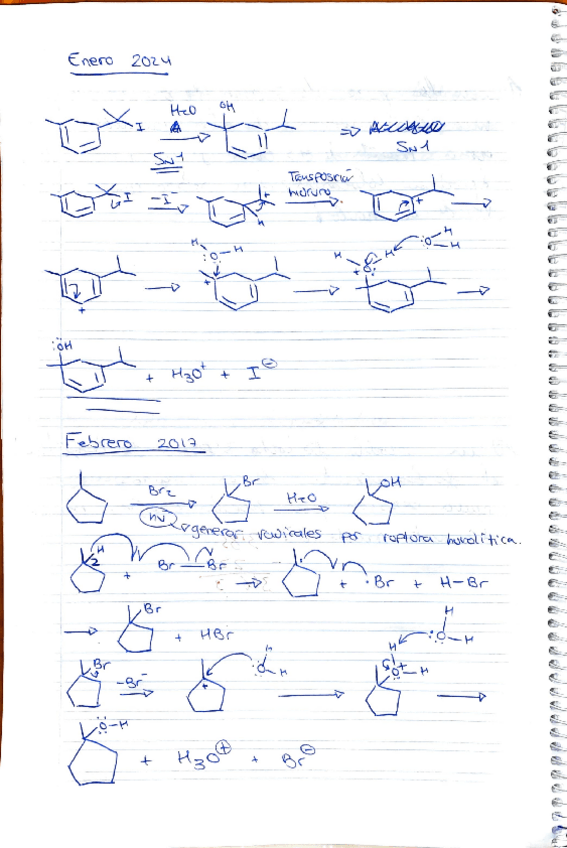 Enero 2024
H2O OH
I => 
SN1 SN1
I -I⁻ Transposición hidruro +
H
+
H H H
O O H
+
H O H
:ÖH
+ H3O⁺ + I⊖
Febrero 2017
Br2 Br H2O OH
hν generar radicales por ruptura homolítica.
H + Br — Br · + ·Br + H-Br
Br + HBr
H
H O H
Br -Br⁻ + O H H O+ - H
O-H
+ H3O⊕ + Br⊖